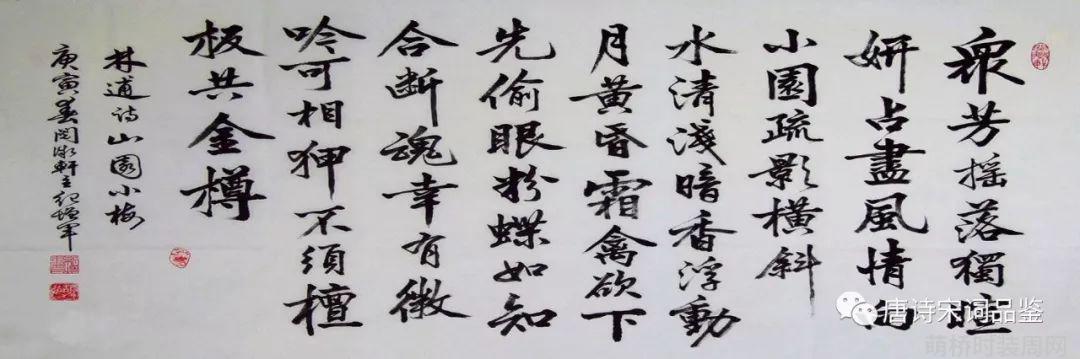 衆芳摇落獨暄
妍占盡風情向
小園疏影横斜
水清淺暗香浮動
月黄昏霜禽欲下
先偷眼粉蝶如知
合断魂幸有微
吟可相狎不須檀
板共金樽
林逋诗山園小梅
庚寅春
唐诗宋词品鉴
萌桥时装周网